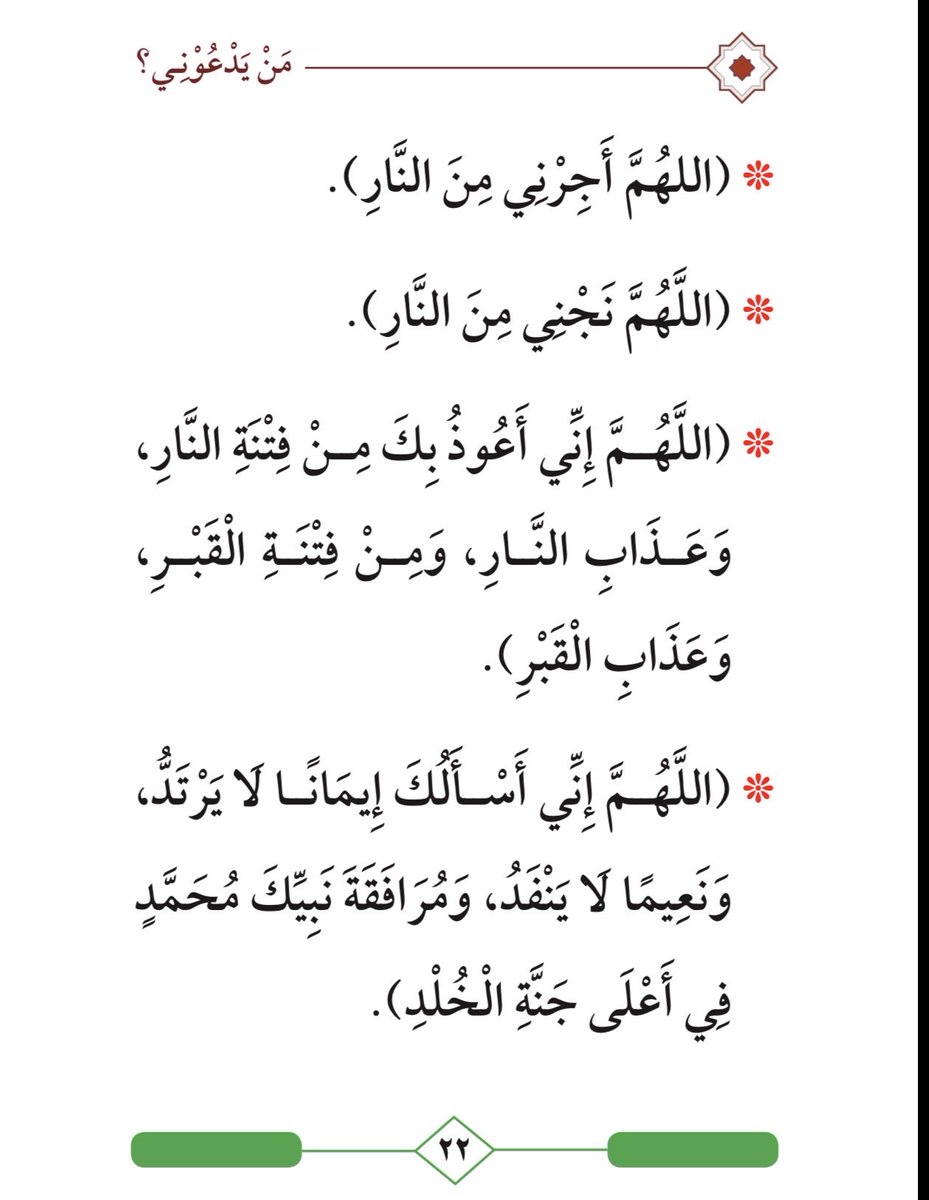 مَنْ يَدْعُوْنِي؟
(اللهُمَّ أَجِرْنِي مِنَ النَّارِ).
(اللَّهُمَّ نَجْنِي مِنَ النَّارِ).
(اللَّهُمَّ إِنِّي أَعُوذُ بِكَ مِنْ فِتْنَةِ النَّارِ،
وَعَذَابِ النَّارِ، وَمِنْ فِتْنَةِ الْقَبْرِ،
وَعَذَابِ الْقَبْرِ).
(اللَّهُمَّ إِنِّي أَسْأَلُكَ إِيمَانًا لَا يَرْتَدُّ،
وَنَعِيمًا لَا يَنْفَدُ، وَمُرَافَقَةَ نَبِيِّكَ مُحَمَّدٍ
فِي أَعْلَى جَنَّةِ الْخُلْدِ).
٢٢